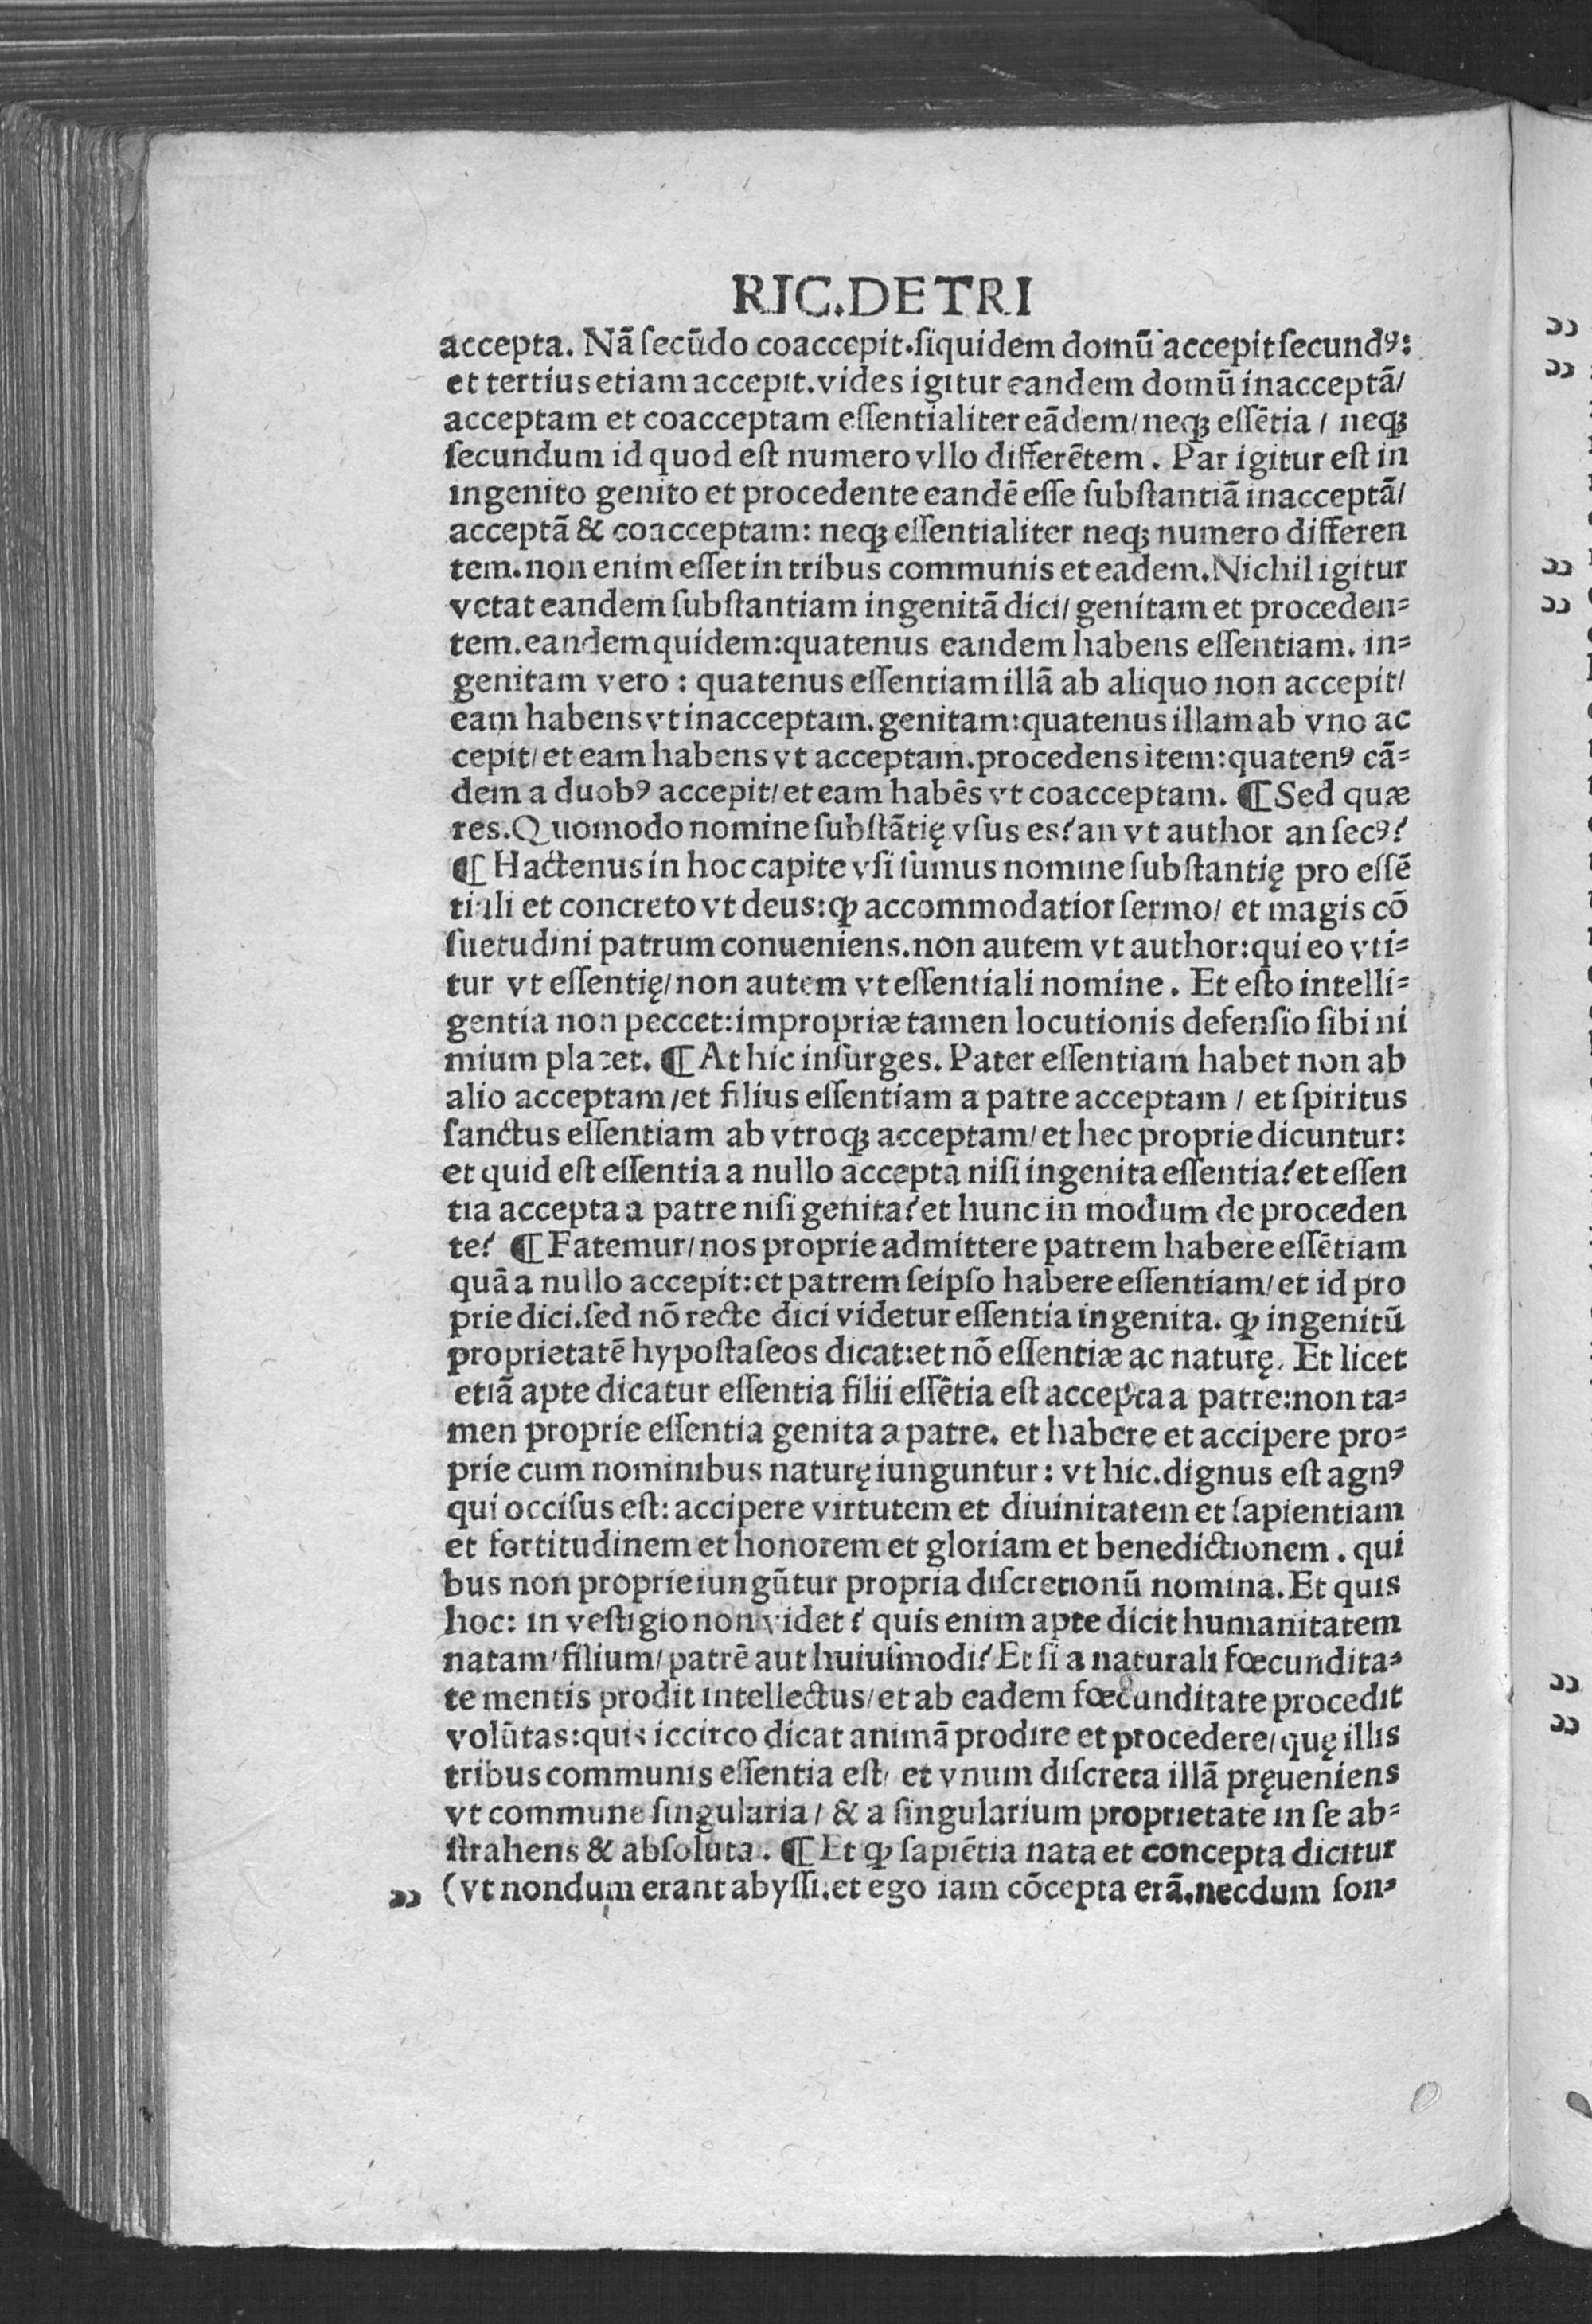 RIC.DE TRI
accepta. Nā ſecūdo coaccepit.ſiquidem domū accepit ſecundꝰ:
et tertius etiam accepit.vides igitur eandem domū inacceptā/
acceptam et coacceptam eſſentialiter eādem/neqꝫ eſſētia / neqꝫ
ſecundum id quod eſt numero vllo differētem. Par igitur eſt in
ingenito genito et procedente eandē eſſe ſubſtantiā inacceptā/
acceptā & coacceptam: neqꝫ eſſentialiter neqꝫ numero differen
tem.non enim eſſet in tribus communis et eadem.Nichil igitur
vetat eandem ſubſtantiam ingenitā dici/ genitam et proceden⸗
tem.eandem quidem:quatenus eandem habens eſſentiam. in⸗
genitam vero : quatenus eſſentiam illā ab aliquo non accepit/
eam habens vt inacceptam.genitam:quatenus illam ab vno ac
cepit/ et eam habens vt acceptam.procedens item:quatenꝰ eā⸗
dem a duobꝰ accepit/ et eam habēs vt coacceptam. ¶ Sed quæ
res.Quomodo nomine ſubſtātię vſus es? an vt author an ſecꝰ?
¶ Hactenus in hoc capite vſi ſumus nomine ſubſtantię pro eſſē
tiali et concreto vt deus:ꝙ accommodatior ſermo/ et magis cō
ſuetudini patrum conueniens.non autem vt author:qui eo vti⸗
tur vt eſſentię/ non autem vt eſſentiali nomine. Et eſto intelli⸗
gentia non peccet:impropriæ tamen locutionis defenſio ſibi ni
mium placet. ¶ At hic inſurges. Pater eſſentiam habet non ab
alio acceptam/et filius eſſentiam a patre acceptam / et ſpiritus
ſanctus eſſentiam ab vtroqꝫ acceptam/ et hec proprie dicuntur:
et quid eſt eſſentia a nullo accepta niſi ingenita eſſentia? et eſſen
tia accepta a patre niſi genita? et hunc in modum de proceden
te? ¶ Fatemur/ nos proprie admittere patrem habere eſſētiam
quā a nullo accepit:et patrem ſeipſo habere eſſentiam/ et id pro
prie dici.ſed nō recte dici videtur eſſentia ingenita. ꝙ ingenitū
proprietatē hypoſtaſeos dicat:et nō eſſentiæ ac naturę. Et licet
etiā apte dicatur eſſentia filii eſſētia eſt accepta a patre:non ta⸗
men proprie eſſentia genita a patre. et habere et accipere pro⸗
prie cum nominibus naturę iunguntur: vt hic.dignus eſt agnꝰ
qui occiſus eſt: accipere virtutem et diuinitatem et ſapientiam
et fortitudinem et honorem et gloriam et benedictionem. qui
bus non proprie iungūtur propria diſcretionū nomina. Et quis
hoc: in veſtigio non videt? quis enim apte dicit humanitatem
natam/ filium/ patrē aut huiuſmodi? Et ſi a naturali fœcundita⸗
te mentis prodit intellectus/ et ab eadem fœcunditate procedit
volūtas:quis iccirco dicat animā prodire et procedere/ quę illis
tribus communis eſſentia eſt/ et vnum diſcreta illā pręueniens
vt commune ſingularia/ & a ſingularium proprietate in ſe ab⸗
ſtrahens & abſoluta. ¶ Et ꝙ ſapiētia nata et concepta dicitur
(vt nondum erant abyſſi.et ego iam cōcepta erā.necdum fon⸗